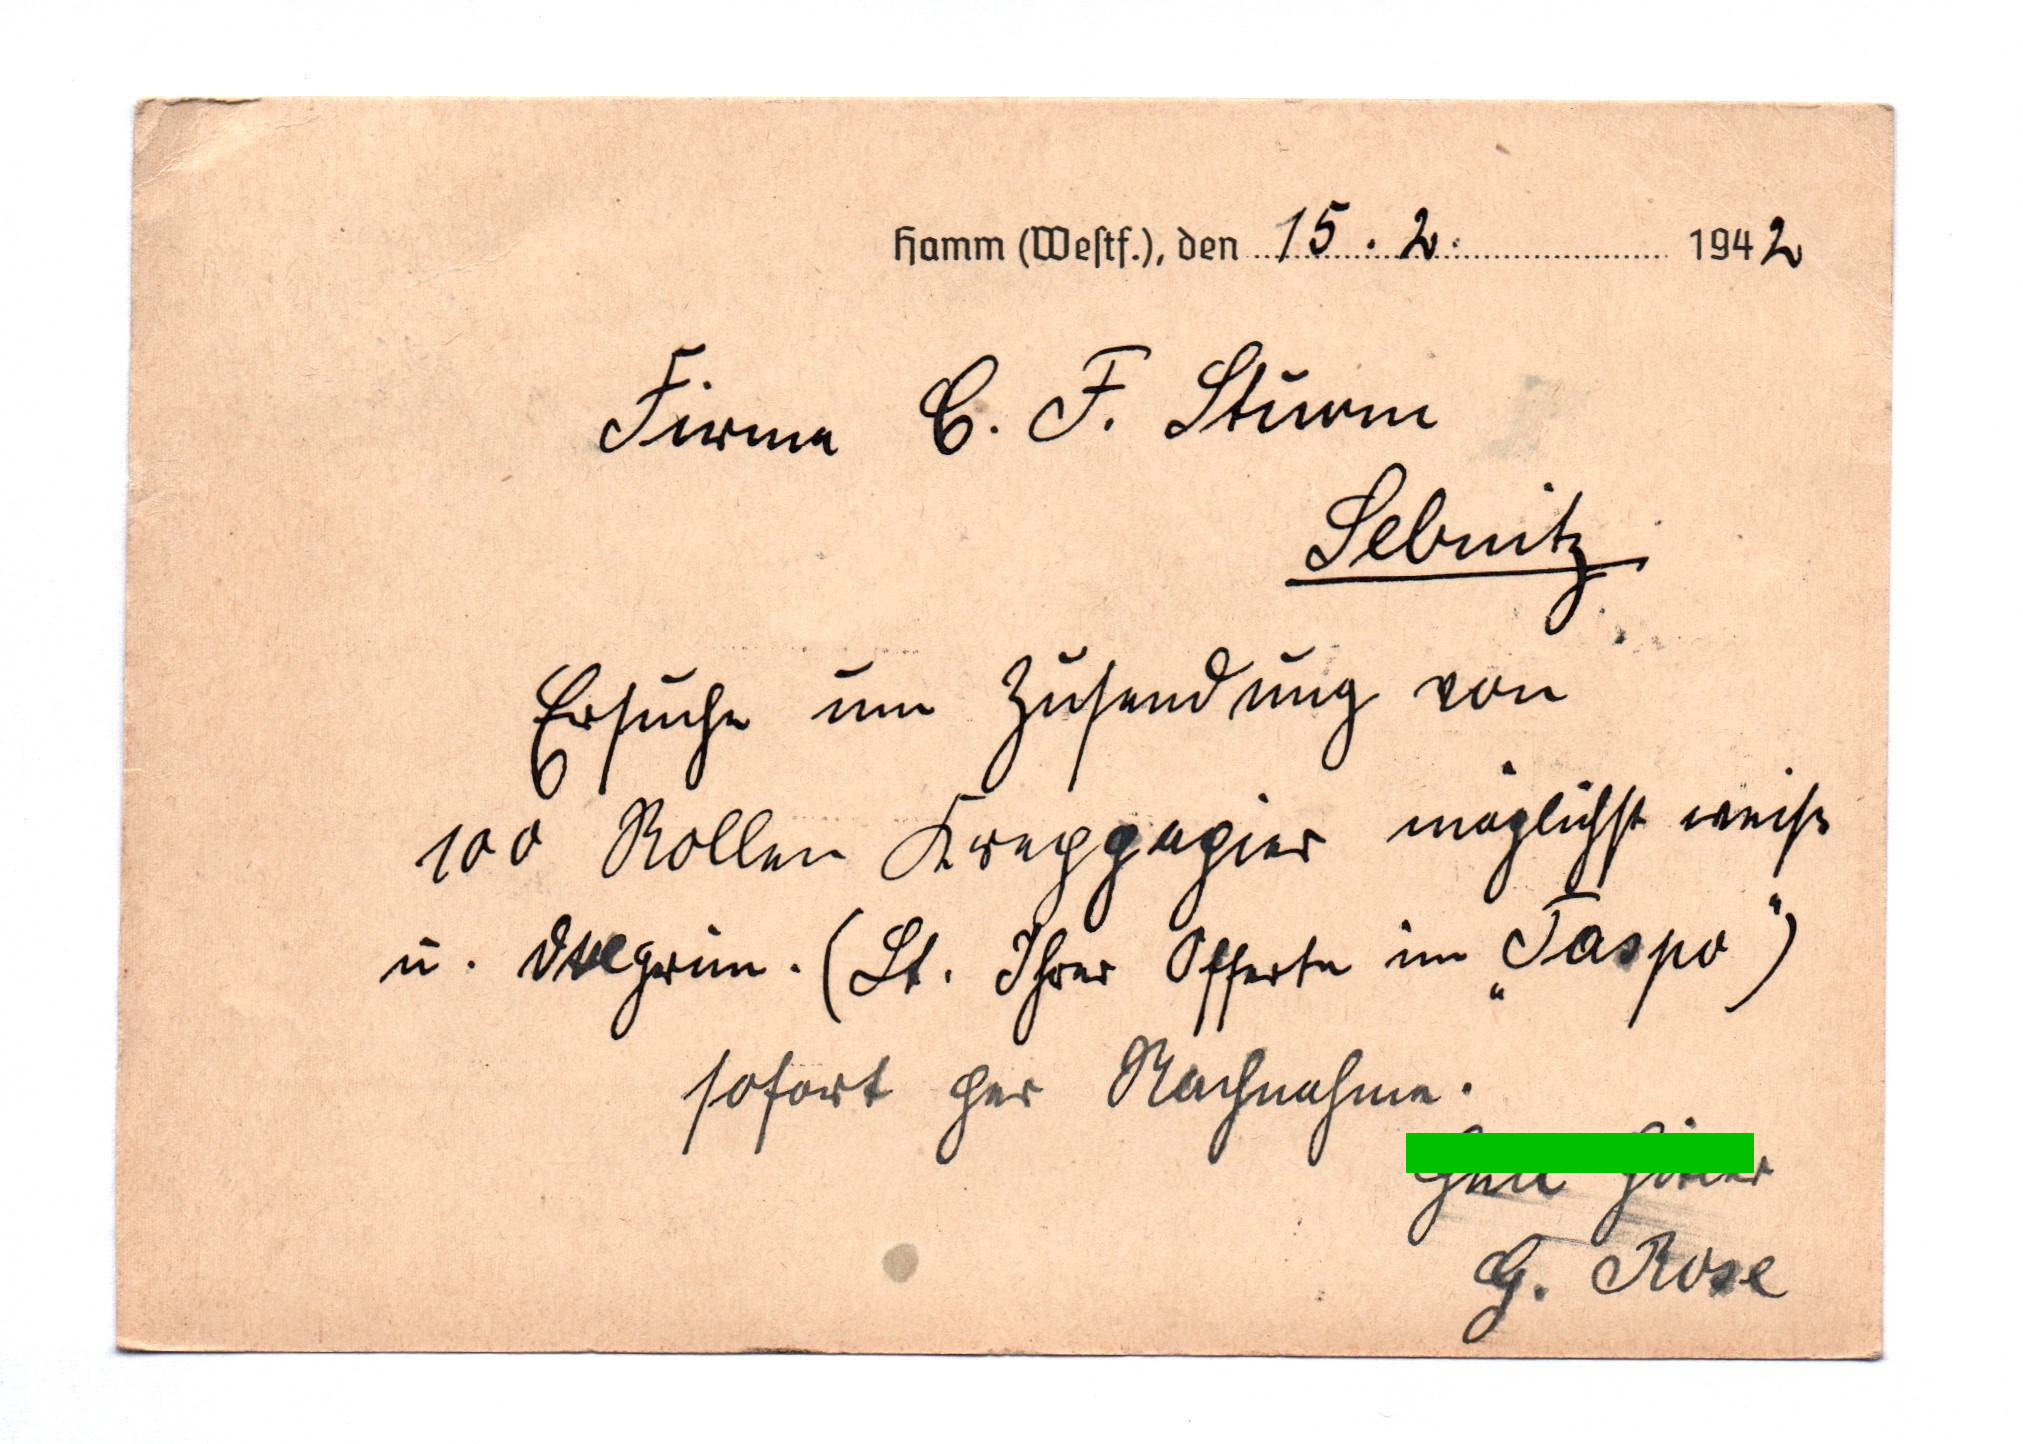 Hamm (Westf.), den 15. 2. 1942
Firma C. F. Sturm
Sebnitz
Ersuche um Zusendung von
100 Rollen Kreppapier möglichst weiß
u. grün. (Lt. Ihrer Offerte im „Taspo")
sofort per Nachnahme.
G. Rose